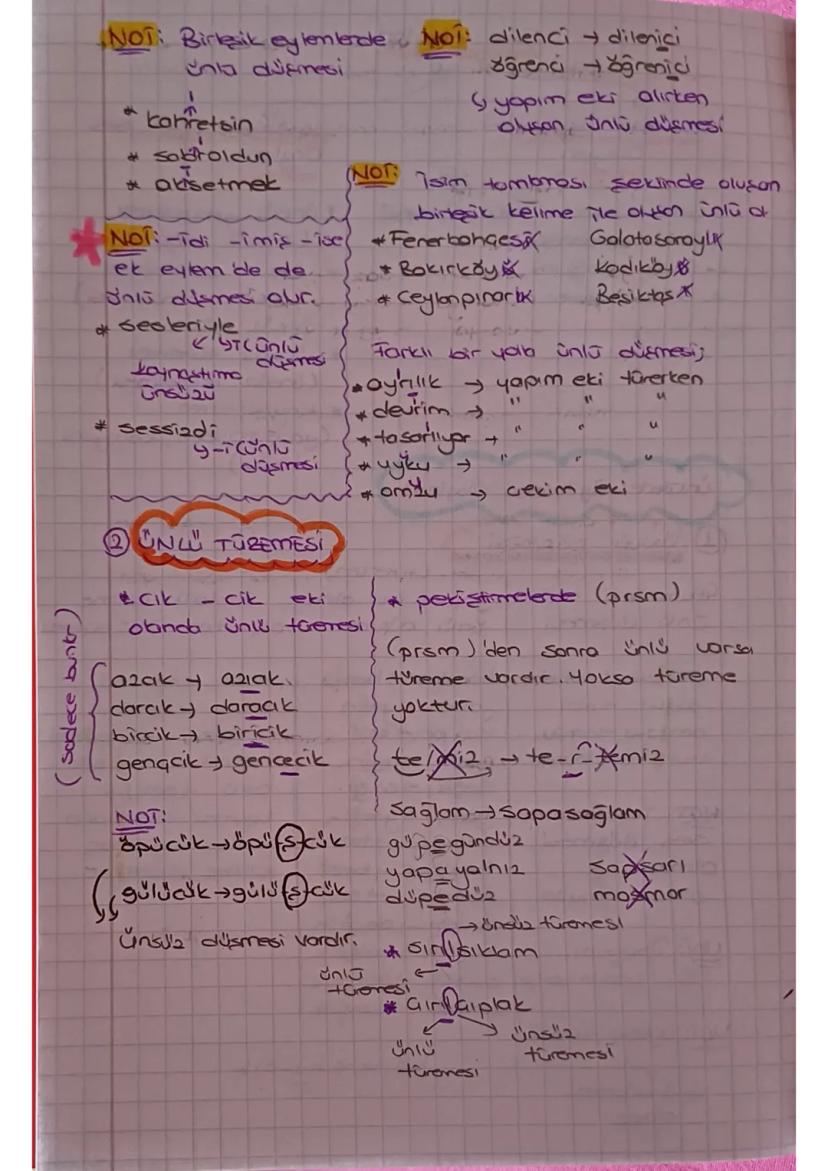 NOT: Birleşik eylemlerde
ünlü düşmesi
* kahretsin
* sabroldun
* aksetmek
NOT: dilenci → dilenici
öğrenci → öğrenici
↳ yapım eki alırken
oluşan, ünlü düşmesi
NOT: -idi -imiş -ise
ek eylem'de de
ünlü düşmesi olur.
* sesleriyle
↳ i ünlü
düşmesi
kaynaştırma
ünsüzü
* sessizdi
↳ -i ünlü
düşmesi
NOT: İsim tamlaması şeklinde oluşan
birleşik kelime ile oluşan ünlü d
* Fenerbahçesi Galatasaraylı
* Bakırköyü Kadıköyü
* Ceylanpınarı Beşiktaş
Farklı bir yolla ünlü düşmesi;
* ayrılık → yapım eki türerken
* devrim → " " "
* tasarlıyor → " " "
* uyku → " " "
* omzu → çekim eki
② ÜNLÜ TÜREMESİ
* cık - cik eki
olanda ünlü türemesi
(sadece bunlar)
azcık → azıcık
darcık → daracık
bircik → biricik
gençcik → gencecik
NOT:
öpücük → öpü(ş)cük
gülücük → gülü(ş)cük
Ünsüz düşmesi vardır.
* pekiştirmelerde (prsm)
(prsm)'den sonra ünlü varsa
türeme vardır. Yoksa türeme
yoktur.
te/miz → te-r-temiz
sağlam → sapasağlam
güpegündüz
yapayalnız sapsarı
düpedüz mosmor
→ ünsüz türemesi
* sırılsıklam
ünlü
türemesi
* çırılçıplak
ünlü
türemesi
ünsüz
türemesi